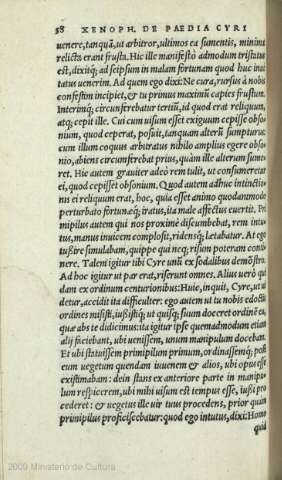 58 XENOPH. DE PAEDIA CYRI
uenere, tanquã, ut arbitror, ultimos ea sumentis, minima
relicta erant frusta. Hic ille manifesto admodum tristatus
est, dixitq; ad seipsum in malam fortunam quod huc inui
tatus uenerim. Ad quem ego dixi: Ne cura, rursus à nobis
confestim incipiet, & tu primus maximũ capies frustum.
Interimq; circunferebatur tertiũ, id quod erat reliquum,
atq; cepit ille. Cui cum uisum esset exiguum cepisse obso
nium, quod ceperat, posuit, tanquam alterũ sumpturus:
cum illum coquus arbitratus nihilo amplius egere obso
nio, abiens circunferebat prius, quàm ille alterum sume
ret. Hic autem grauiter adeò rem tulit, ut consumeretur
ei, quod cepisset obsonium. Quod autem adhuc intinctio
nis ei reliquum erat, hoc, quia esset animo quodammodo
perturbato fortunæq; iratus, ita male affectus euertit. Pri
mipilus autem qui nos proximè discumbebat, rem intui
tus, manus inuicem complosit, ridensq; lætabatur. At ego
tußire simulabam, quippe qui neq; risum poteram conti
nere. Talem igitur tibi Cyre unũ ex sodalibus demõstro.
Ad hoc igitur ut par erat, riserunt omnes. Alius uerò qui
dam ex ordinum centurionibus: Huic, inquit, Cyre, ut ui
detur, accidit ita difficulter: ego autem ut tu nobis edoctis
ordines misisti, iußistiq; ut quisq; suum doceret ordinẽ ea,
quæ abs te didicimus: ita igitur ipse quemadmodum etiam
alij faciebant, ubi uenissem, unum manipulum docebam.
Et ubi statuissem primipilum primum, ordinassemq; post
eum uegetum quendam iuuenem & alios, ubi opus esse
existimabam: dein stans ex anteriore parte in manipu
lum respicerem, ubi mihi uisum est tempus esse, iußi pro
cederet: & uegetus ille uir tuus procedens, prior quàm
primipilus proficiscebatur: quod ego intutus, dixi: Homo
quid
2009 Ministerio de Cultura